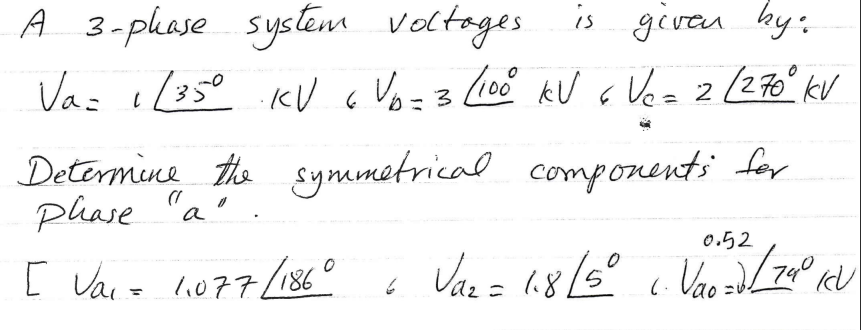 A 3-phase system voltages is given by:
Va= 1∠35° kV , Vb=3∠100° kV , Vc= 2∠270° kV
Determine the symmetrical components for
phase "a".
0.52
[ Va1 = 1.077∠186° , Va2 = 1.8∠5° , Vao=∠79° kV